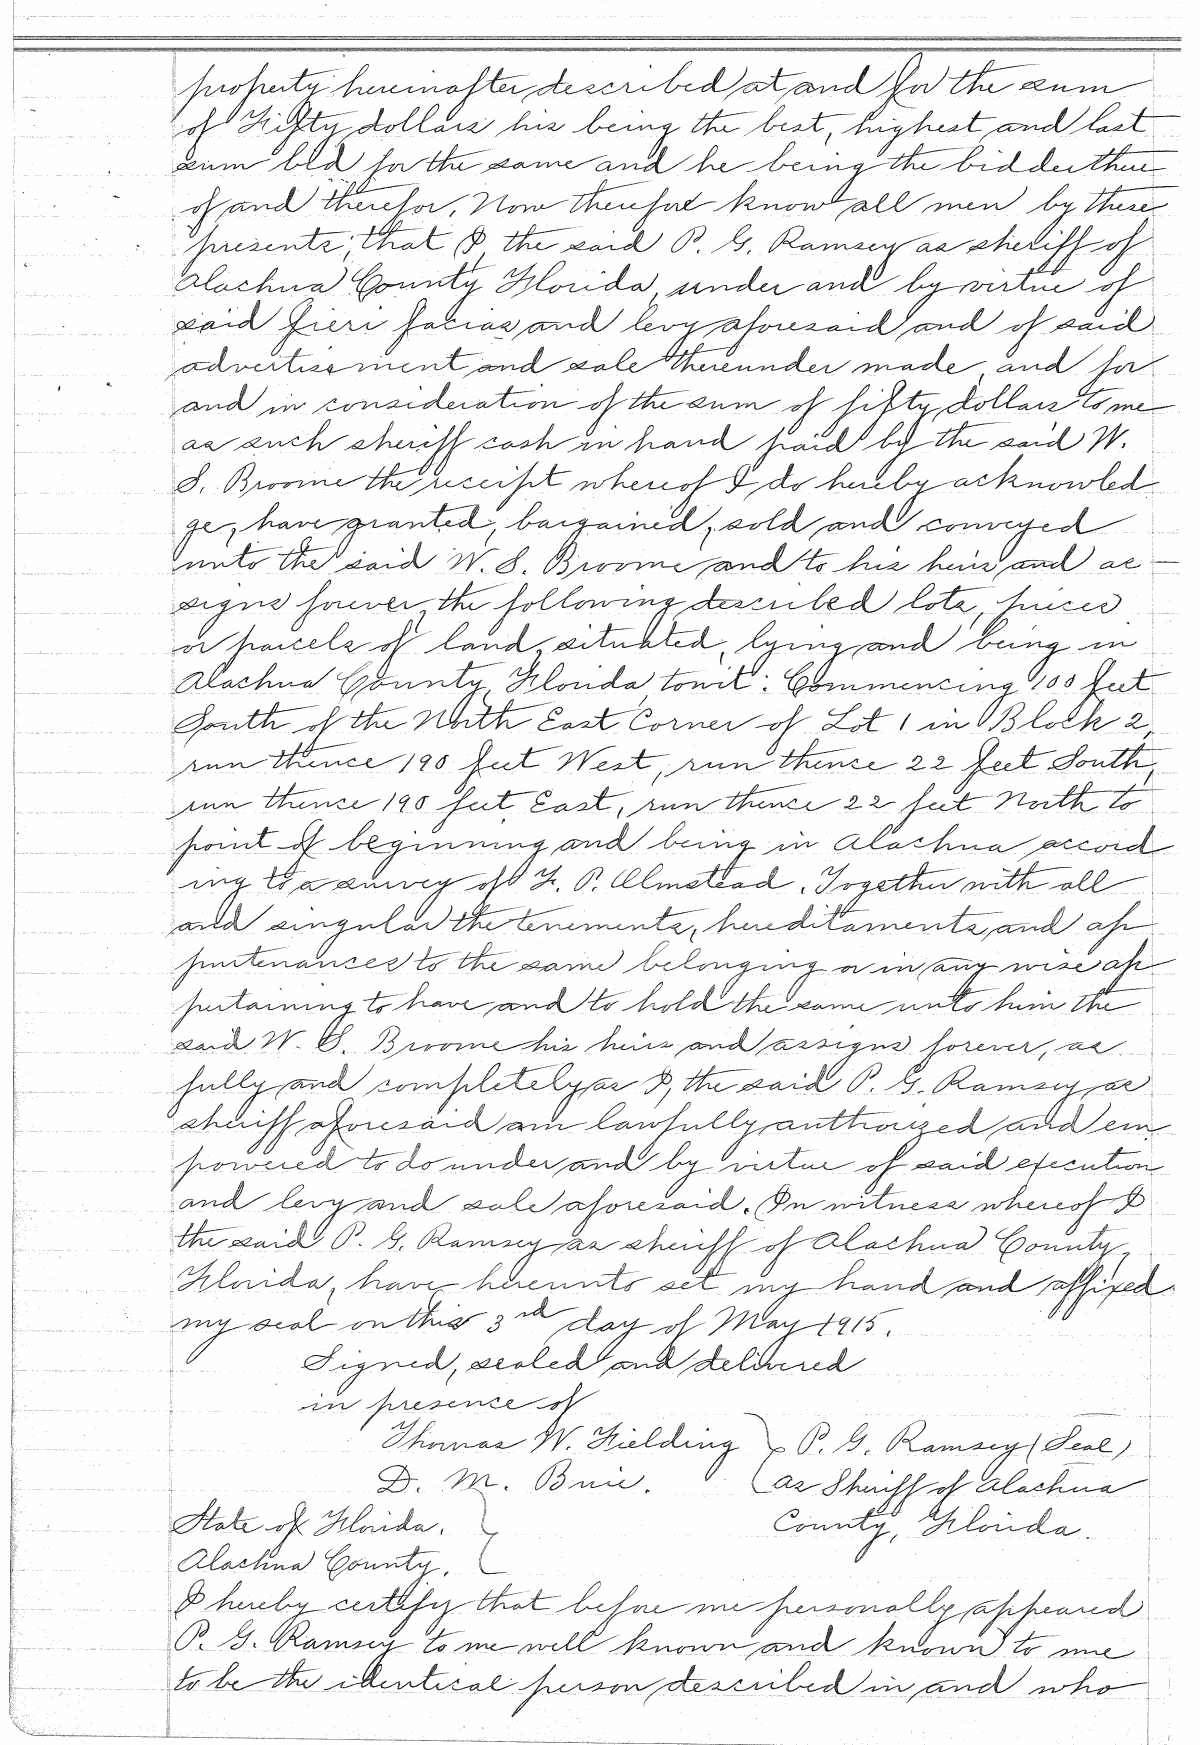 property hereinafter described at and for the sum
of Fifty dollars his being the best, highest and last
sum bid for the same and he being the bidder there
of and therefor. Now therefore know all men by these
presents; that I, the said P. G. Ramsey as sheriff of
Alachua County Florida, under and by virtue of
said fieri facias and levy aforesaid and of said
advertisement and sale thereunder made, and for
and in consideration of the sum of fifty dollars to me
as such sheriff cash in hand paid by the said W.
S. Broome the receipt whereof I do hereby acknowled
ge, have granted, bargained, sold and conveyed
unto the said W. S. Broome and to his heirs and as-
signs forever, the following described lots, pieces
or parcels of land, situated, lying and being in
Alachua County, Florida, towit: Commencing 100 feet
South of the North East Corner of Lot 1 in Block 2,
run thence 190 feet West, run thence 22 feet South,
run thence 190 feet East, run thence 22 feet North to
point of beginning and being in Alachua accord
ing to a survey of F. P. Olmstead. Together with all
and singular the tenements, hereditaments and ap
purtenances to the same belonging or in any wise ap
pertaining to have and to hold the same unto him the
said W. S. Broome his heirs and assigns forever, as
fully and completely as I, the said P. G. Ramsey as
sheriff aforesaid am lawfully authorized and em
powered to do under and by virtue of said execution
and levy and sale aforesaid. In witness whereof I
the said P. G. Ramsey as sheriff of Alachua County,
Florida, have hereunto set my hand and affixed
my seal on this 3rd day of May 1915.
Signed, sealed and delivered
in presence of
Thomas W. Fielding } P. G. Ramsey (Seal)
D. M. Buie. as Sheriff of Alachua
State of Florida. County, Florida.
Alachua County.
I hereby certify that before me personally appeared
P. G. Ramsey to me well known and known to me
to be the identical person described in and who